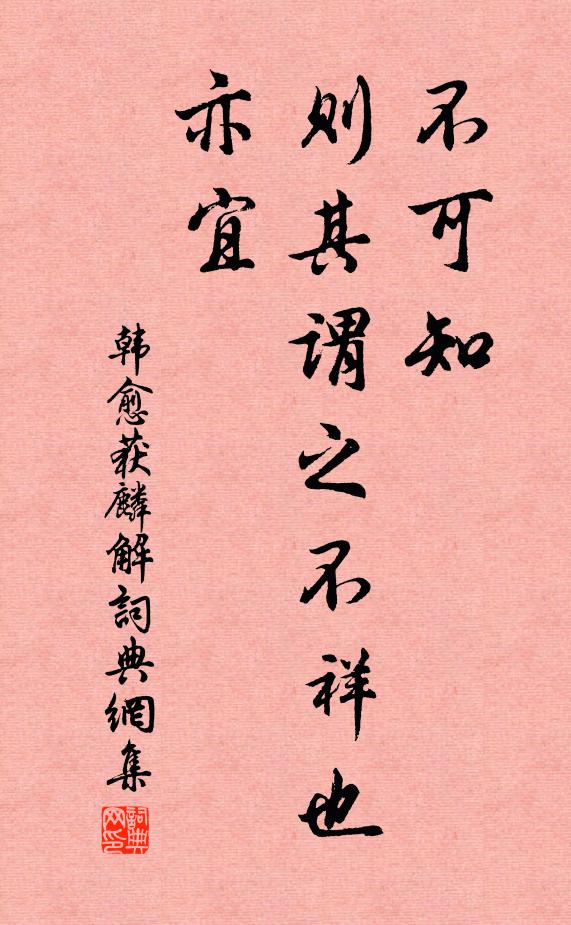 不可知
则其谓之不祥也
亦宜
韩愈获麟解詞典網集
詞典网印